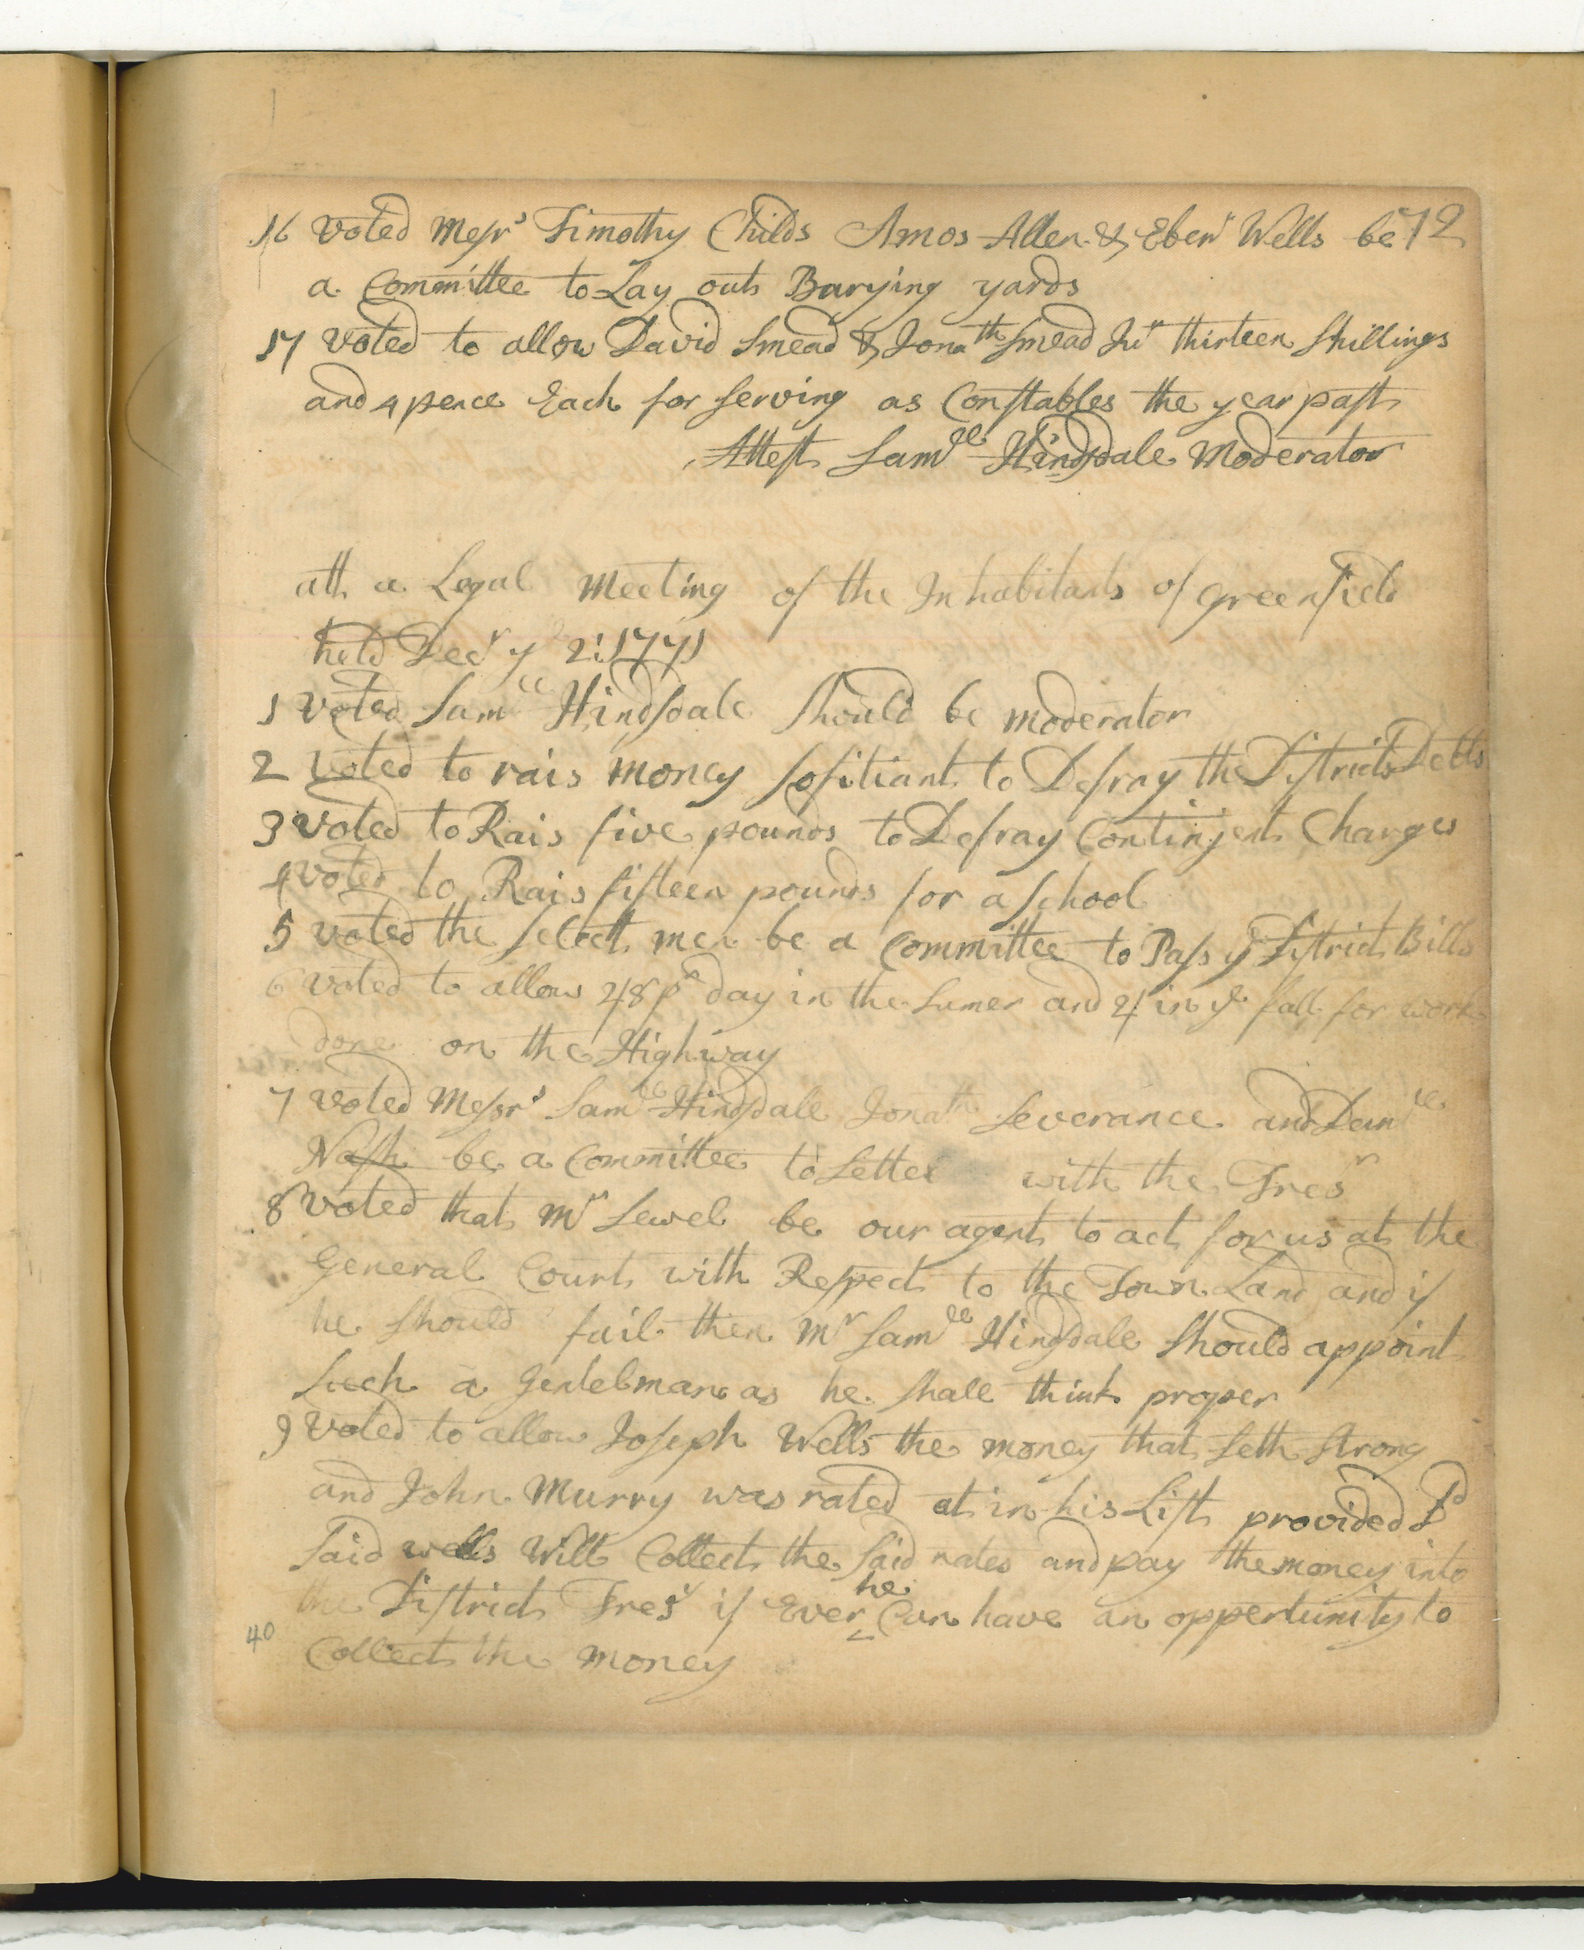 16 voted Mesrs Timothy Childs Amos Allen & Ebenr Wells be 72
a Committee to Lay out Burying yards
17 voted to allow David Smead & Jonath Smead Jur thirteen Shillings
and 4 pence Each for serving as Constables the year past
Attest Samll Hindsdale Moderator
att a Legal Meeting of the Inhabitants of greenfield
held Decr ye 2: 1771
1 voted Samll Hindsdale Should be moderator
2 voted to rais money sofitiant to Defray the Districts Detts
3 voted to Rais five pounds to Defray Contingent Charges
4 voted to Rais fifteen pounds for a school
5 voted the Select men be a Committee to Pass ye District Bills
6 voted to allow 2/8 pr day in the Sumer and 2/ in ye fall for work
done on the Highway
7 voted Messrs Samll Hindsdale Jonath Severance and Danll
Nash be a Committee to Settel with the Tresr
8 voted that Mr Sewel be our agent to act for us at the
General Court with Respect to the Town Land and if
he should fail then Mr Samll Hindsdale Should appoint
Such a Gentelman as he shall think proper
9 voted to allow Joseph Wells the money that Seth Strong
and John Murry was rated at in his List provided
Said wells Will Collect the Said rates and pay the money into
the District Tresy if Ever he Can have an oppertunity to
40
Collect the money